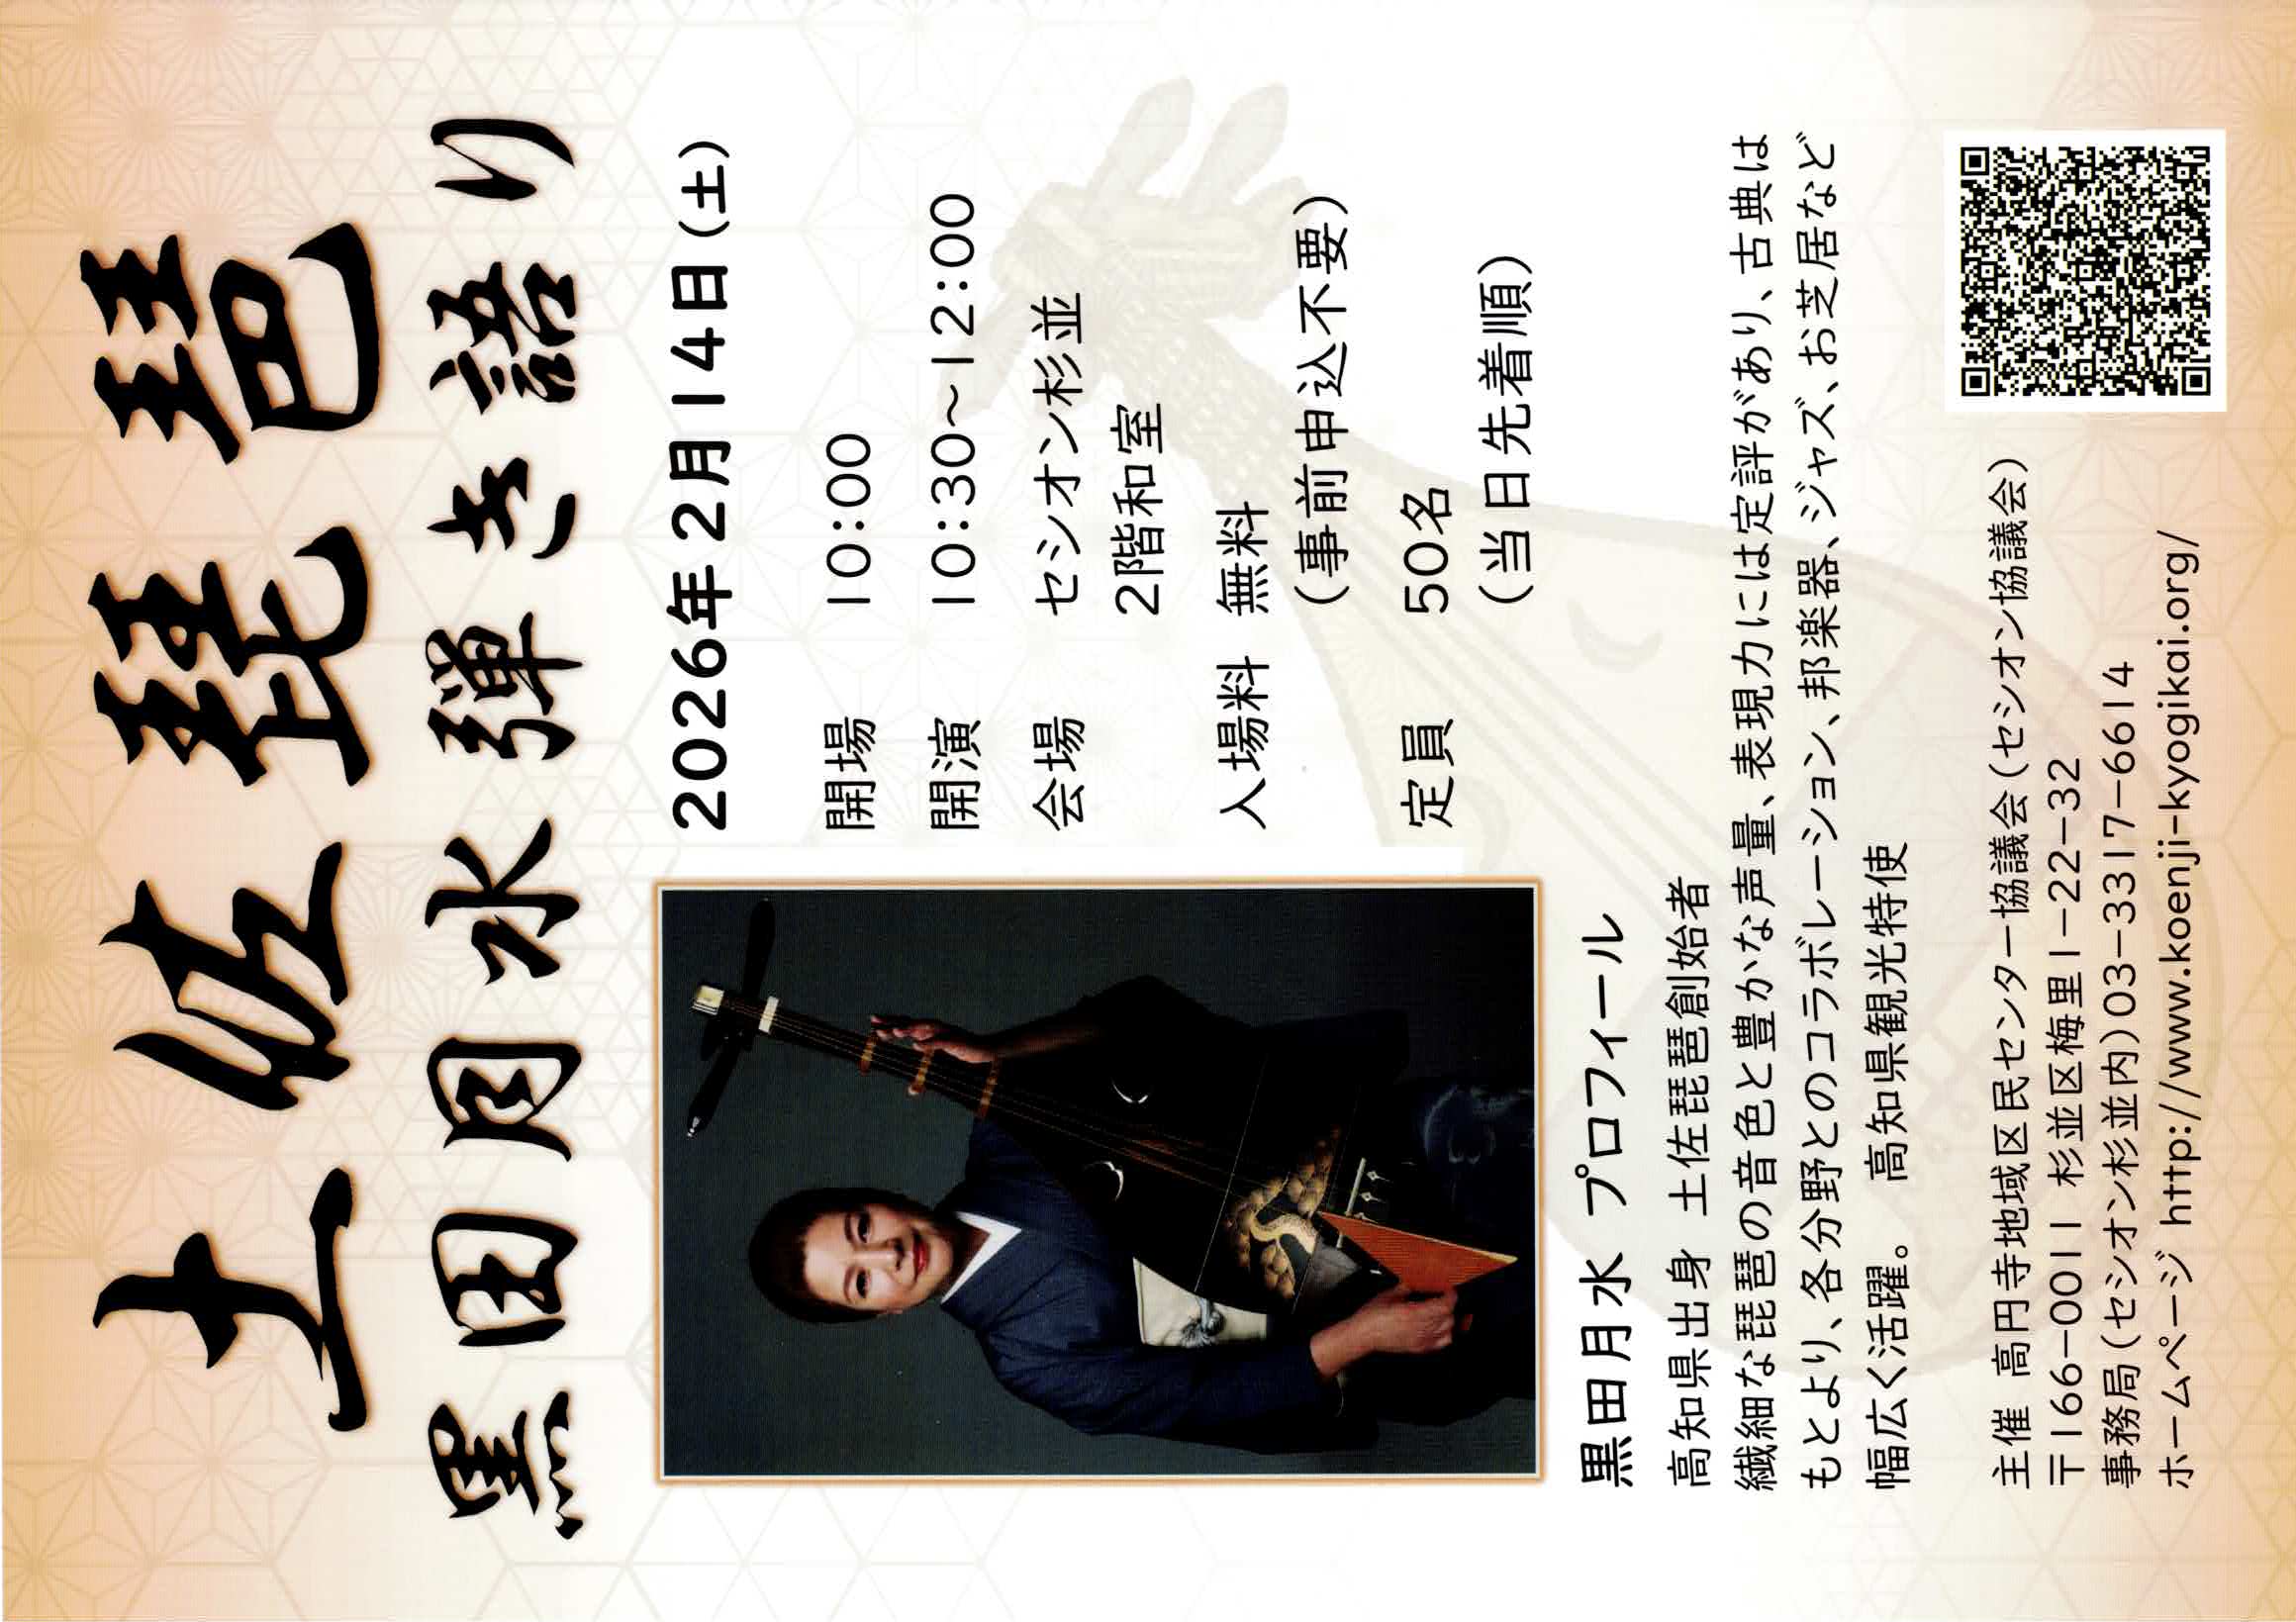 土佐琵琶
黒田月水 弾き語り
2026年2月14日（土）
開場 10:00
開演 10:30～12:00
会場 セシオン杉並
2階和室
入場料 無料
（事前申込不要）
定員 50名
（当日先着順）
黒田月水 プロフィール
高知県出身 土佐琵琶創始者
繊細な琵琶の音色と豊かな声量、表現力には定評があり、古典は
もとより、各分野とのコラボレーション、邦楽器、ジャズ、お芝居など
幅広く活躍。 高知県観光特使
主催 高円寺地域区民センター協議会（セシオン杉並協議会）
〒166-0011 杉並区梅里1-22-32
事務局（セシオン杉並内）03-3317-6614
ホームページ http://www.koenji-kyogikai.org/